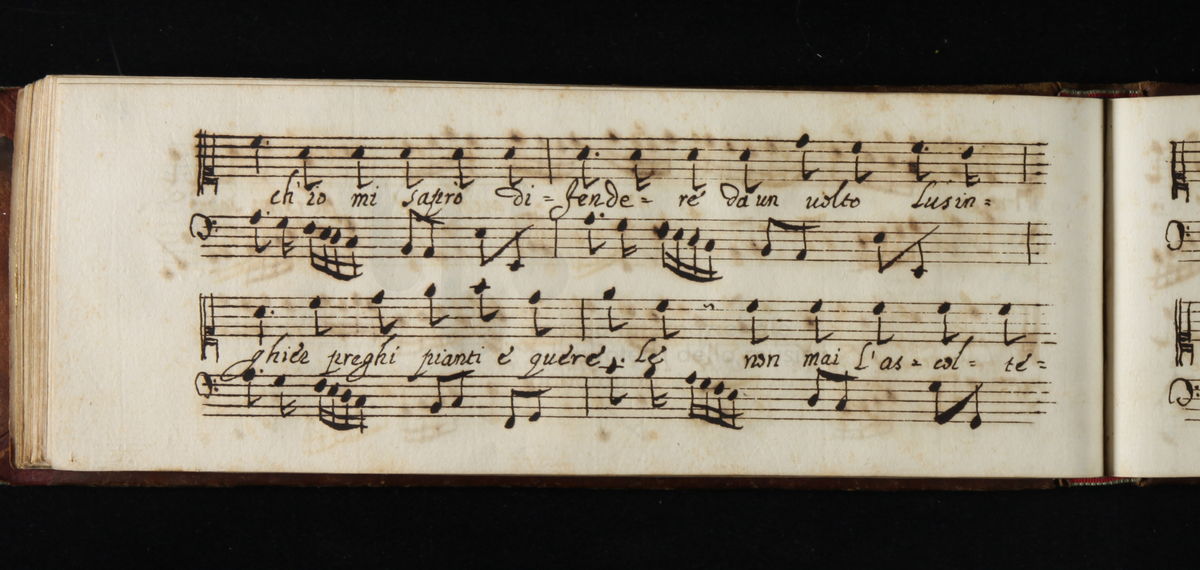 ch'io mi saprò di= fende= re da un uolto lusin=
ghier preghi pianti e quere. le non mai l'as= col= te=